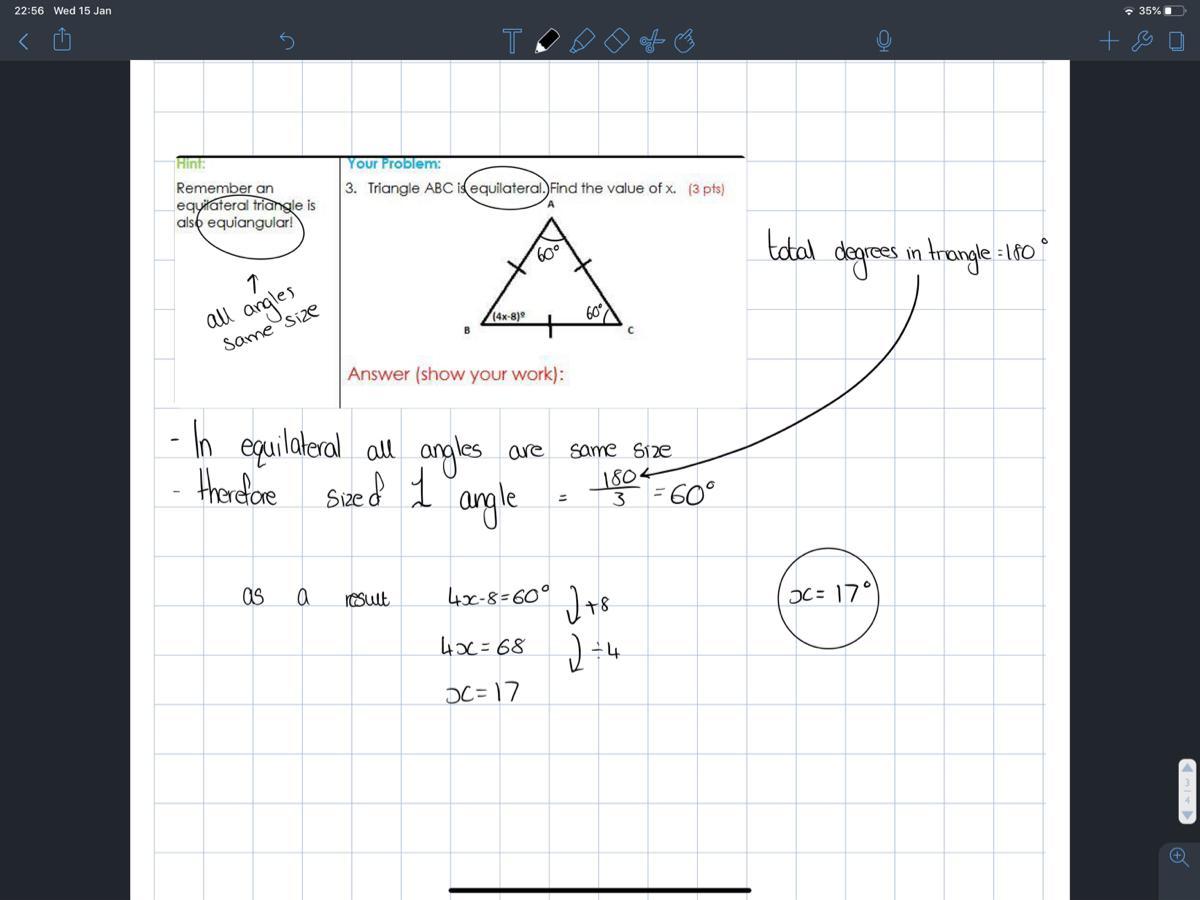 22:56 Wed 15 Jan
35%
Hint:
Remember an
equilateral triangle is
also equiangular!
↑
all angles
same size
Your Problem:
3. Triangle ABC is equilateral. Find the value of x. (3 pts)
A
60°
(4x-8)º
60°
B
C
Answer (show your work):
total degrees in triangle = 180°
- In equilateral all angles are same size
- therefore size of 1 angle = 180/3 = 60°
as a result 4x-8=60° +8
4x=68 ÷4
x=17
x=17°
3
4